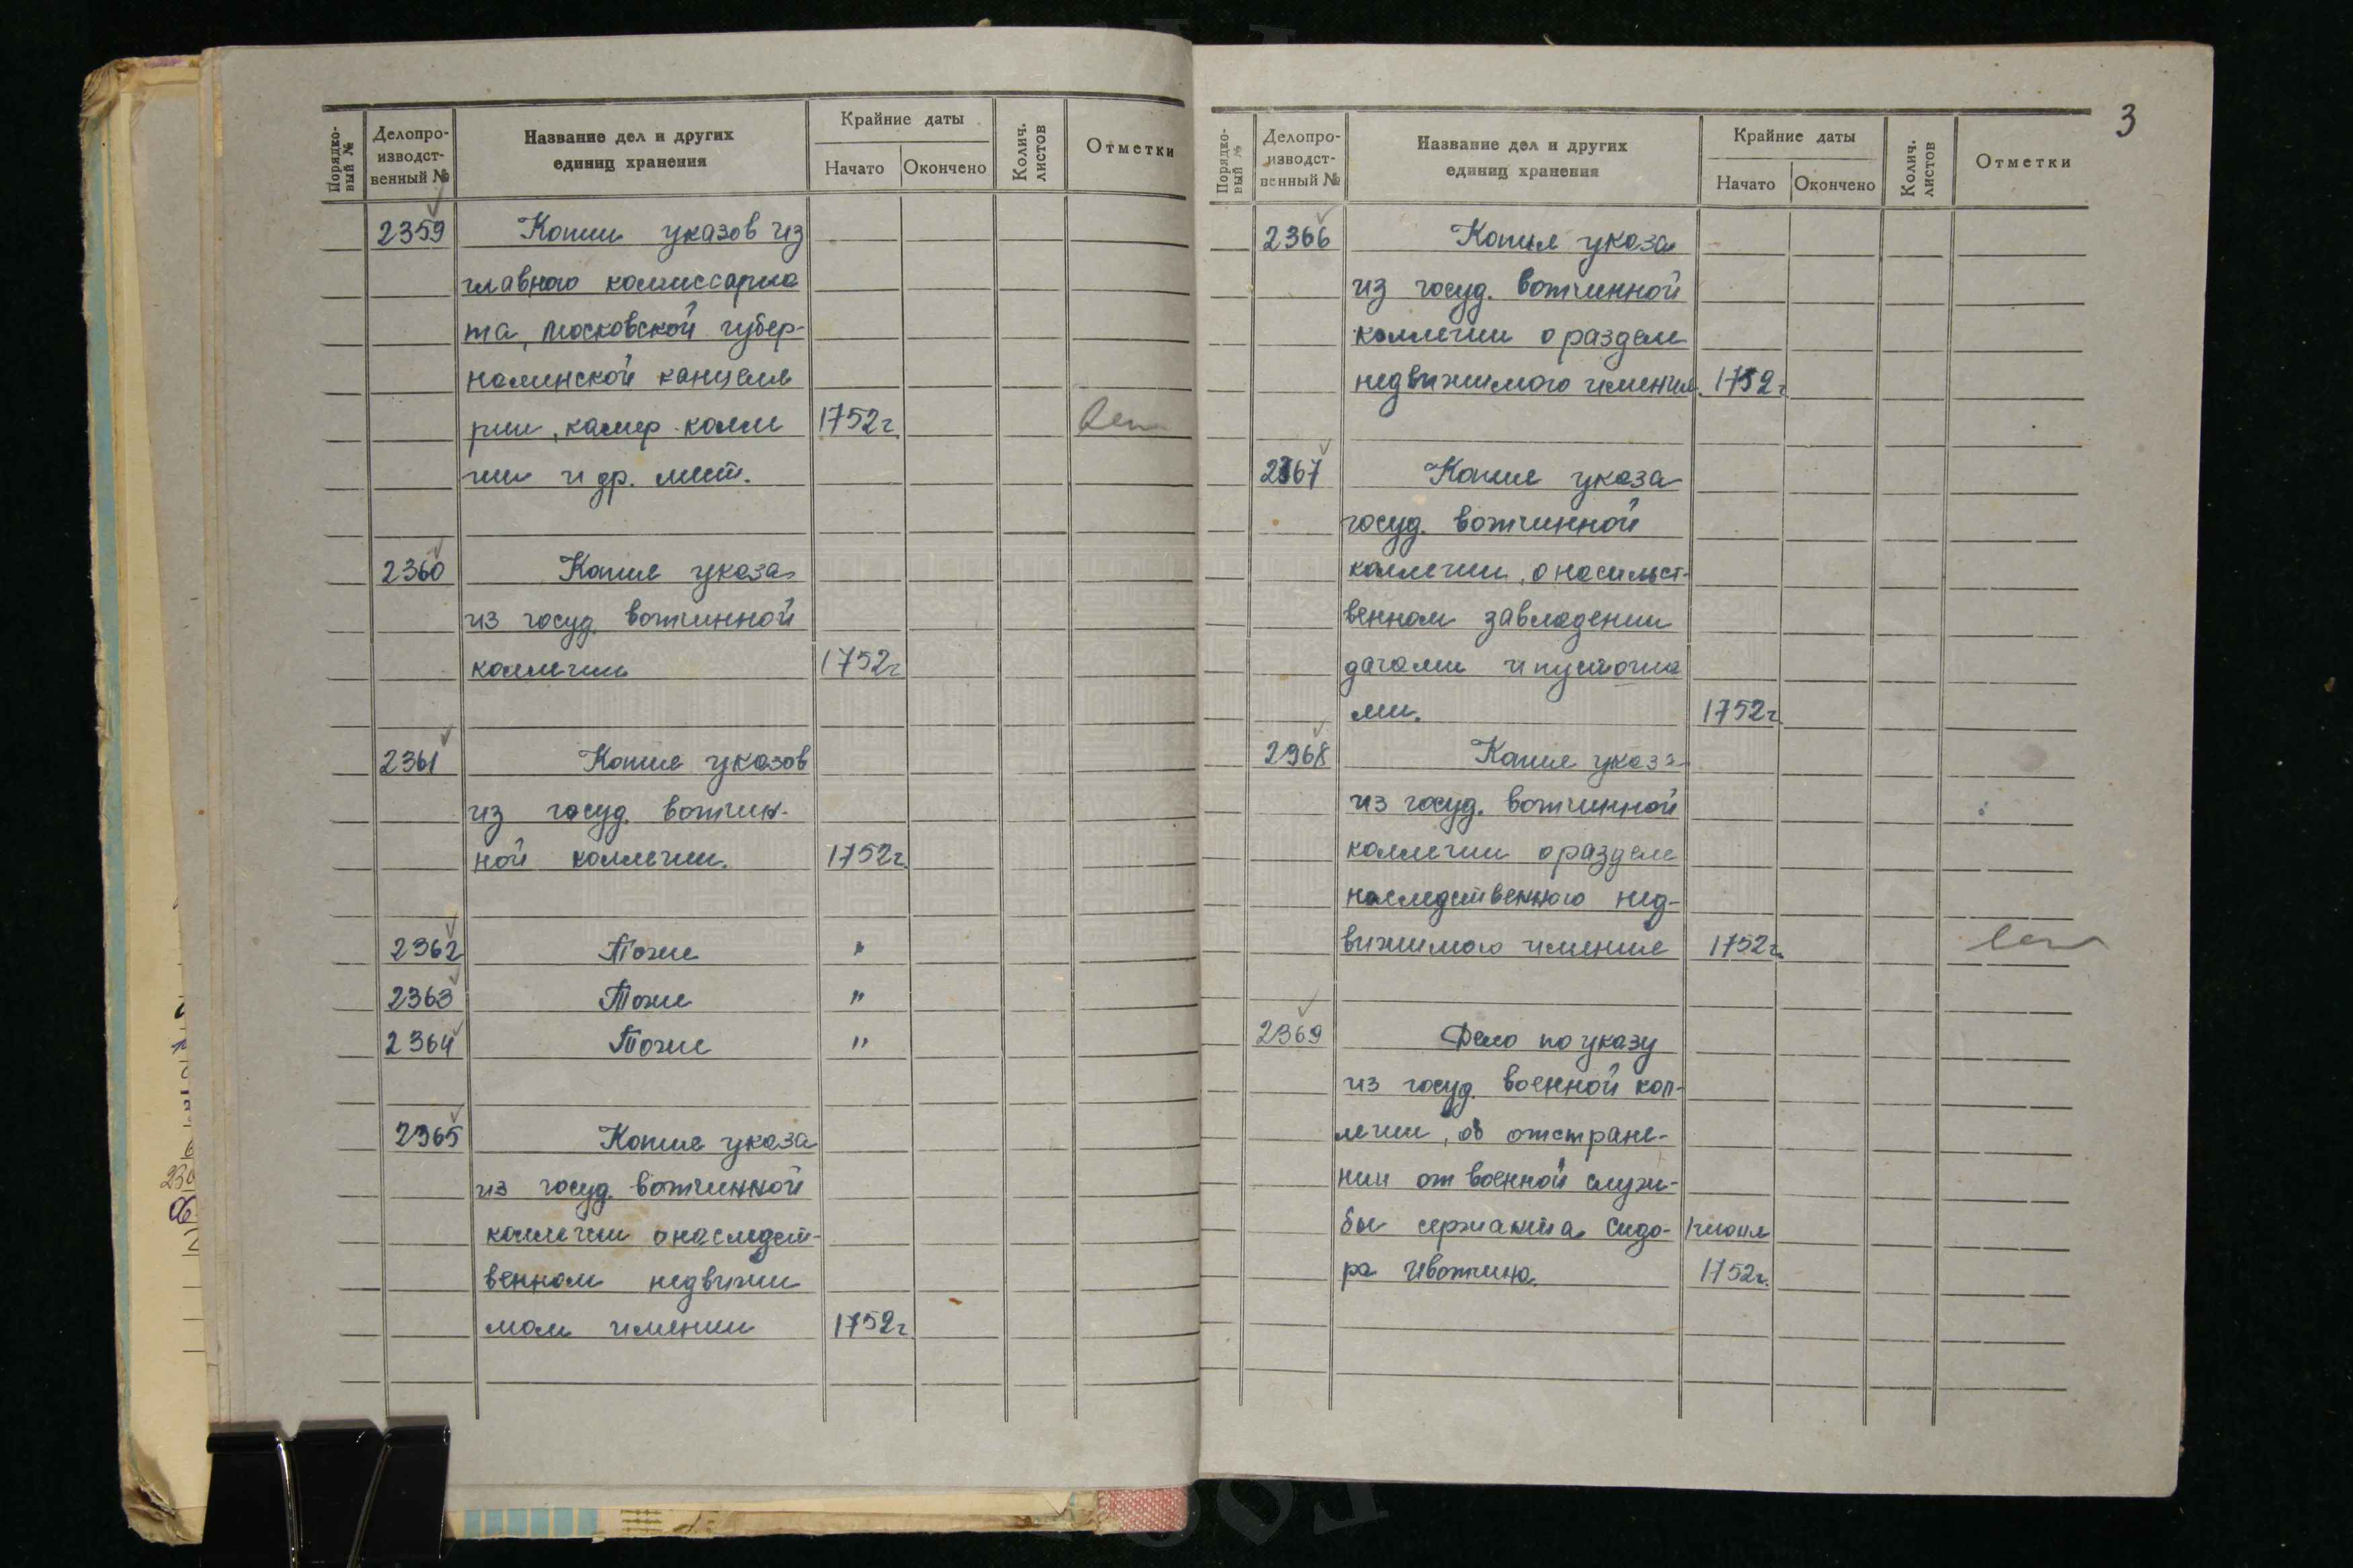 Порядко-
вый №
Делопро-
изводст-
венный №
Название дел и других
единиц хранения
Крайние даты
Начато
Окончено
Колич.
листов
Отметки
2359 Копии указов из
главного комиссариа
та, московской губер-
наминской канцеля
рии, камер-колле 1752г
гии и др. мест.
2360 Копия указа
из госуд. вотчинной
коллегии 1752г
2361 Копия указов
из госуд. вотчин-
ной коллегии. 1752г.
2362 Тоже "
2363 Тоже "
2364 Тоже "
2365 Копия указа
из госуд. вотчинной
коллегии о наследст-
венном недвижи
мом имении 1752г
3
Порядко-
вый №
Делопро-
изводст-
венный №
Название дел и других
единиц хранения
Крайние даты
Начато
Окончено
Колич.
листов
Отметки
2366 Копия указа
из госуд. вотчинной
коллегии о разделе
недвижимого имения. 1752г
2367 Копия указа
госуд. вотчинной
коллегии, о насильст-
венном завладении
дачами и пустоша
ми. 1752г.
2368 Копия указа
из госуд. вотчинной
коллегии о разделе
наследственного нед-
вижимого имения 1752г.
2369 Дело по указу
из госуд. военной кол-
легии, об отстране-
нии от военной служ-
бы сержанта Сидо- 1 июля
ра Ивотина. 1752г.